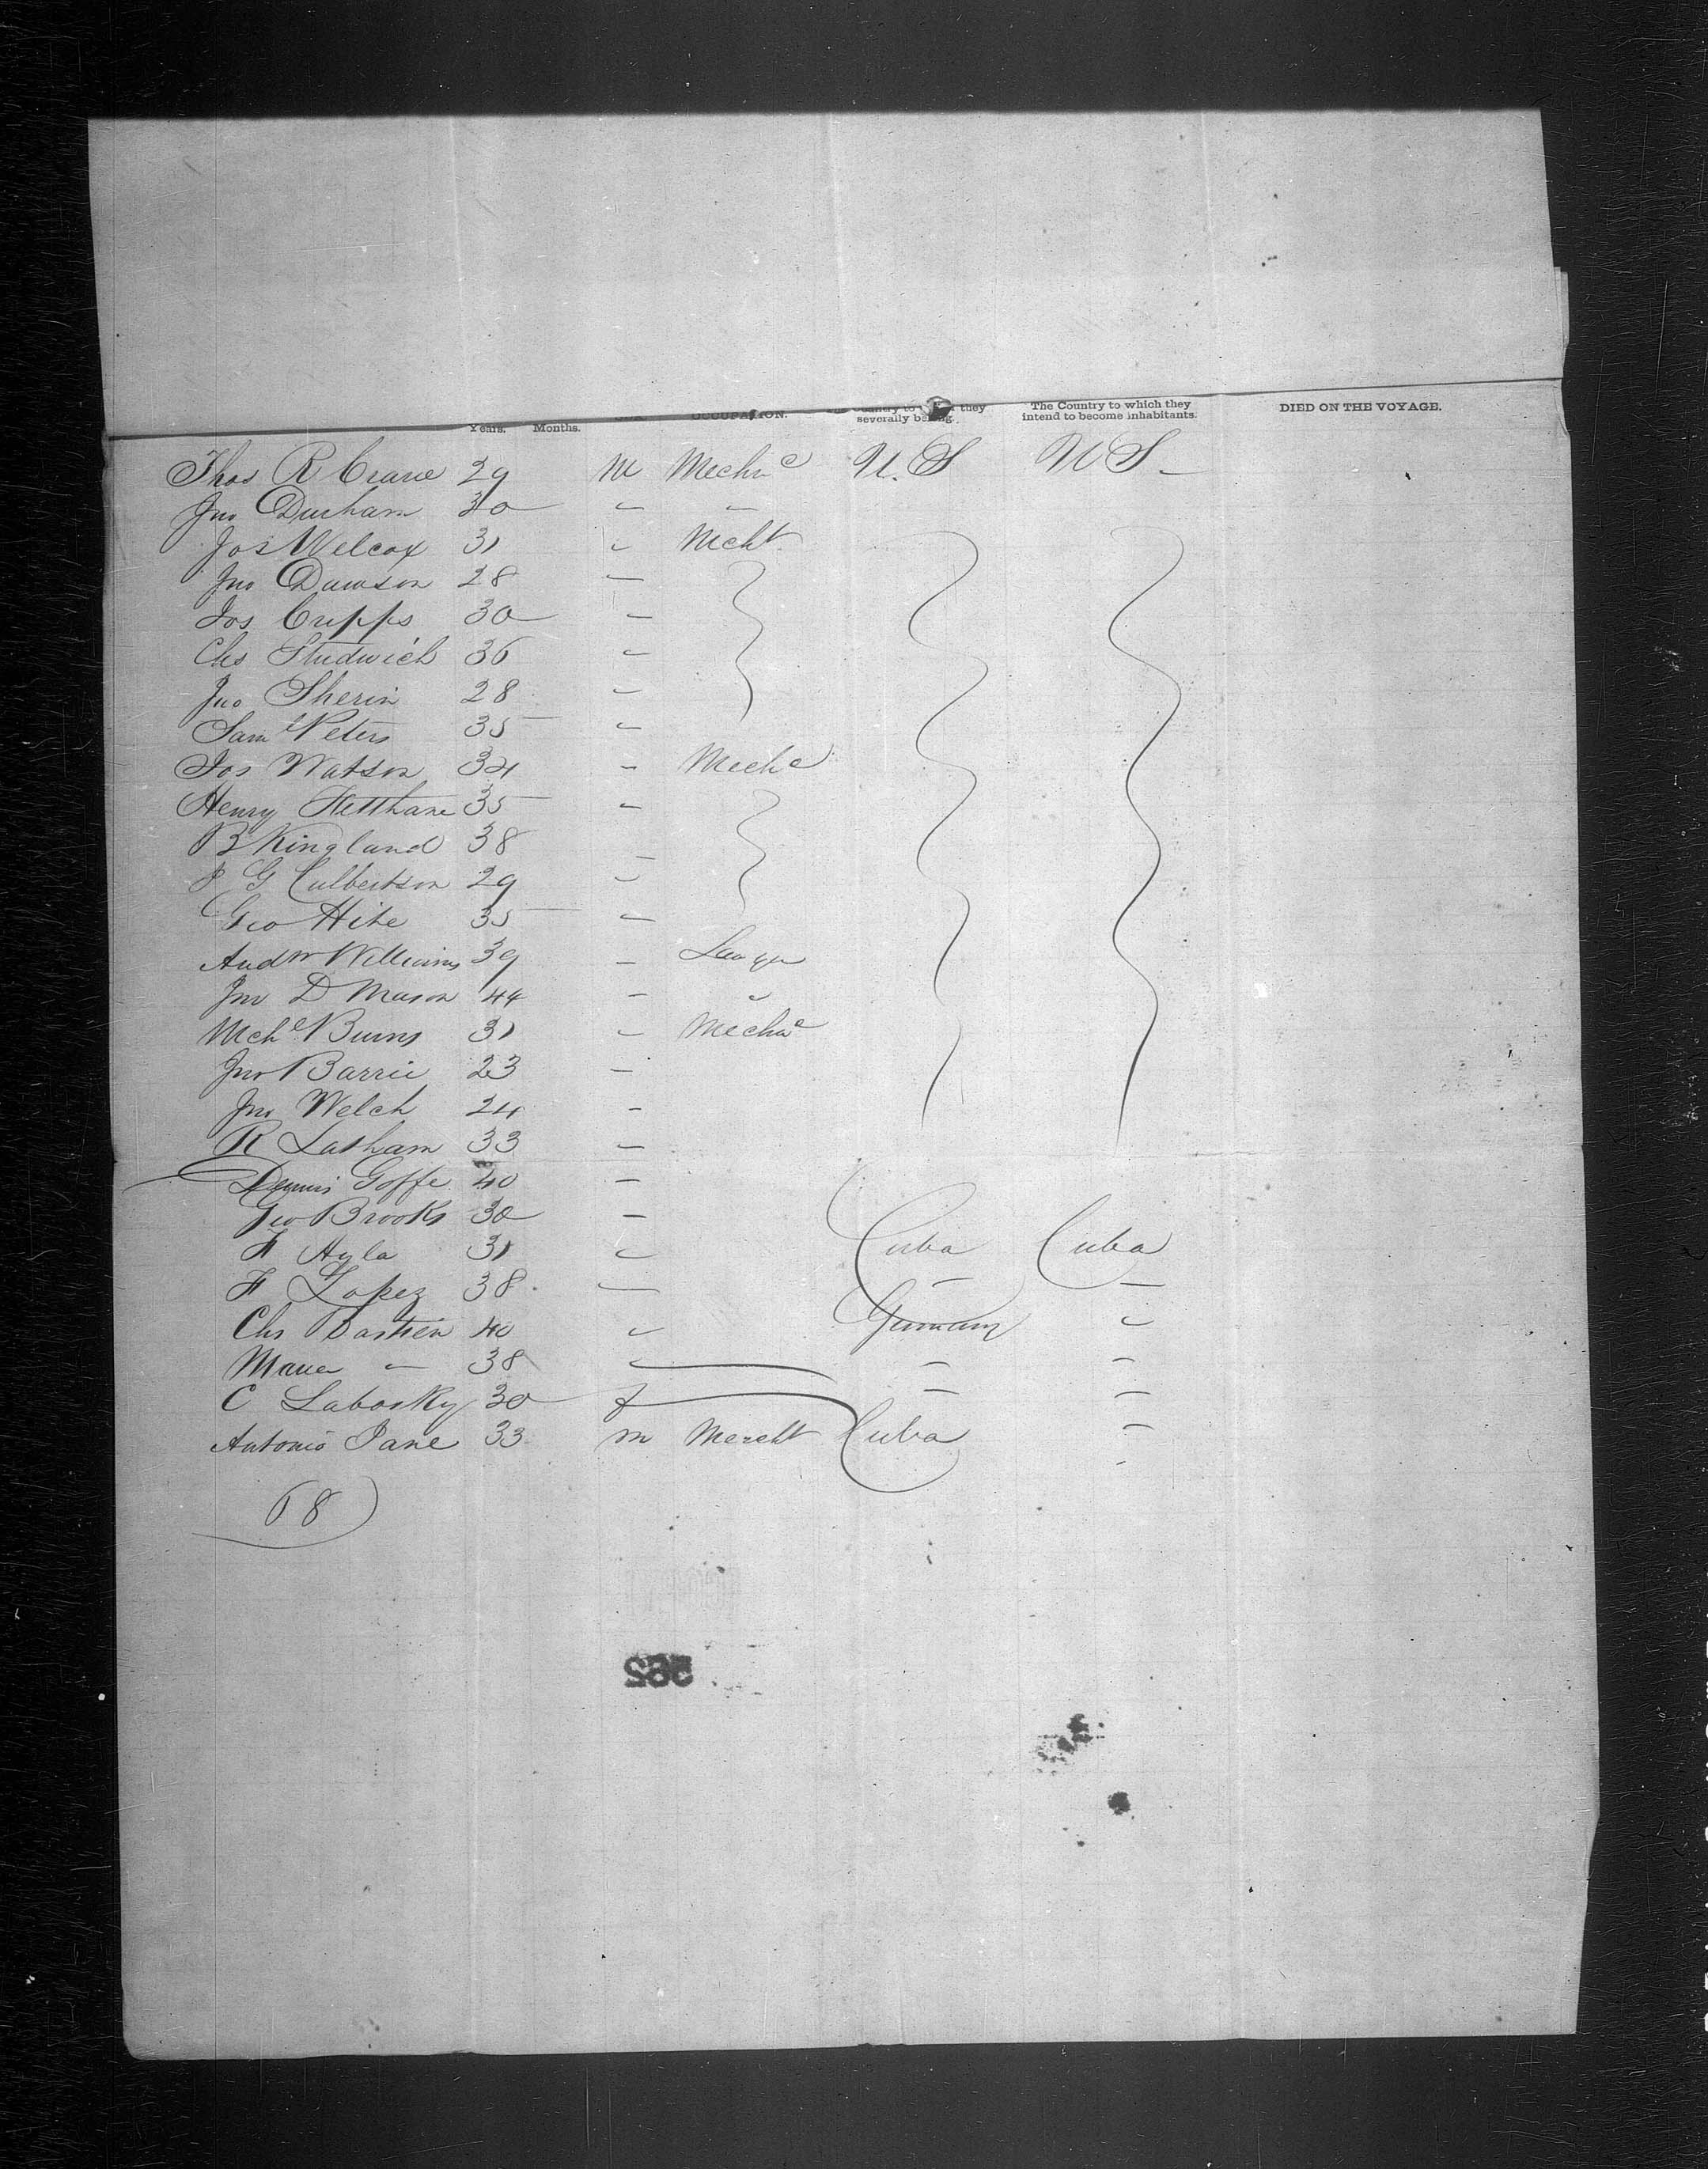 Years. Months. OCCUPATION. they severally belong. The Country to which they intend to become inhabitants. DIED ON THE VOYAGE.
Thos R Crane 29 M Mechnc U.S U S
Jno Durham 30 " "
Jos Welcox 31 " Mcht
Jno Dawson 28 "
Jos Cripps 30 "
Chs Studwich 36 "
Jno Sherin 28 "
Saml Peters 35 "
Jos Watson 34 " Mechc
Henry 35 "
B Kingland 38 "
G Culbertson 29 "
Geo Hite 35 "
Andw Williams 39 " Lawyer
Jno D Mason 44 " "
Mchl Burns 31 " Mechc
Jno Barrie 23 "
Jno Welch 24 "
R Latham 33 "
Dennis Goffe 40 "
Geo Brooks 30 "
F Ayla 31 " Cuba Cuba
F Lopez 38 " " "
Chs Bastien 40 " Germany "
" 38 " " "
C Labosky 30 f " "
Antonio Jane 33 m Mercht Cuba "
68
265